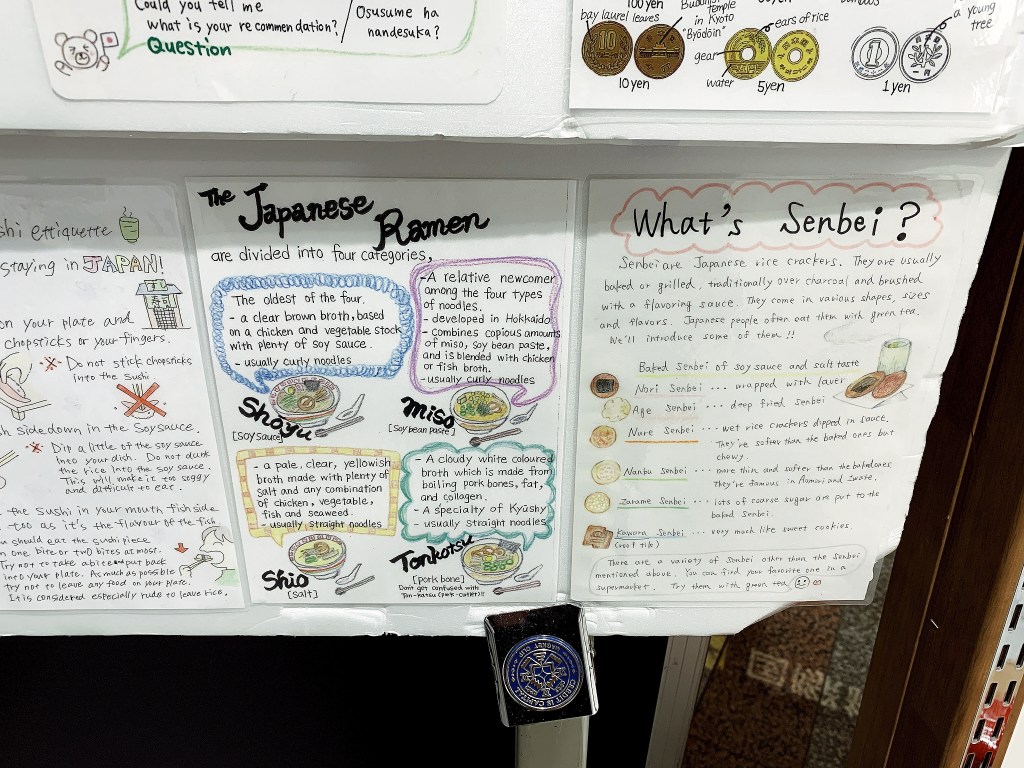 Could you tell me
what is your recommendation?
Question
Osusume ha
nandesuka?
100yen
bay laurel leaves
temple
in Kyoto
"Byōdōin"
gear
water
ears of rice
a young
tree
10yen
5yen
1yen
shi ettiquette
staying in JAPAN!
on your plate and
chopsticks or your fingers.
Do not stick chopsticks
into the Sushi
side down in the Soysauce.
Dip a little of the soy sauce
into your dish. Do not dunk
the rice into the soy sauce.
This will make it too soggy
and difficult to eat.
the sushi in your mouth fish side
too as it's the flavour of the fish.
should eat the sushi piece
in one bite or two bites at most.
Try not to take a bite and put back
into your plate. As much as possible
try not to leave any food on your plate.
It is considered especially rude to leave rice.
The Japanese Ramen
are divided into four categories,
The oldest of the four.
- a clear brown broth, based
on a chicken and vegetable stock
with plenty of soy sauce.
- usually curly noodles
Shoyu
[Soy Sauce]
- A relative newcomer
among the four types
of noodles.
- developed in Hokkaido
- Combines copious amounts
of miso, soy bean paste,
and is blended with chicken
or fish broth.
- usually curly noodles
Miso
[Soy bean paste]
- a pale, clear, yellowish
broth made with plenty of
salt and any combination
of chicken, vegetable,
fish and seaweed.
- usually straight noodles
Shio
[salt]
- A cloudy white coloured
broth which is made from
boiling pork bones, fat,
and collagen.
- A specialty of Kyūshu
usually straight noodles
Tonkotsu
[pork bone]
Don't get confused with
Ton-katsu (pork-cutlet)!!
What's Senbei?
Senbei are Japanese rice crackers. They are usually
baked or grilled, traditionally over charcoal and brushed
with a flavoring sauce. They come in various shapes, sizes
and flavors. Japanese people often eat them with green tea.
We'll introduce some of them!!
Baked Senbei of soy sauce and salt taste
Nori Senbei ... wrapped with laver
Age Senbei ... deep fried senbei
Nure Senbei ... wet rice crackers dipped in sauce.
They're softer than the baked ones but
chewy.
Nanbu Senbei ... more thin and softer than the baked ones.
They're famous in Aomori and Iwate.
Zarame Senbei ... lots of coarse sugar are put to the
baked Senbei.
Kawara Senbei ... very much like sweet cookies.
(roof tile)
There are a variety of Senbei other than the Senbei
mentioned above. You can find your favorite one in a
supermarket. Try them with green tea